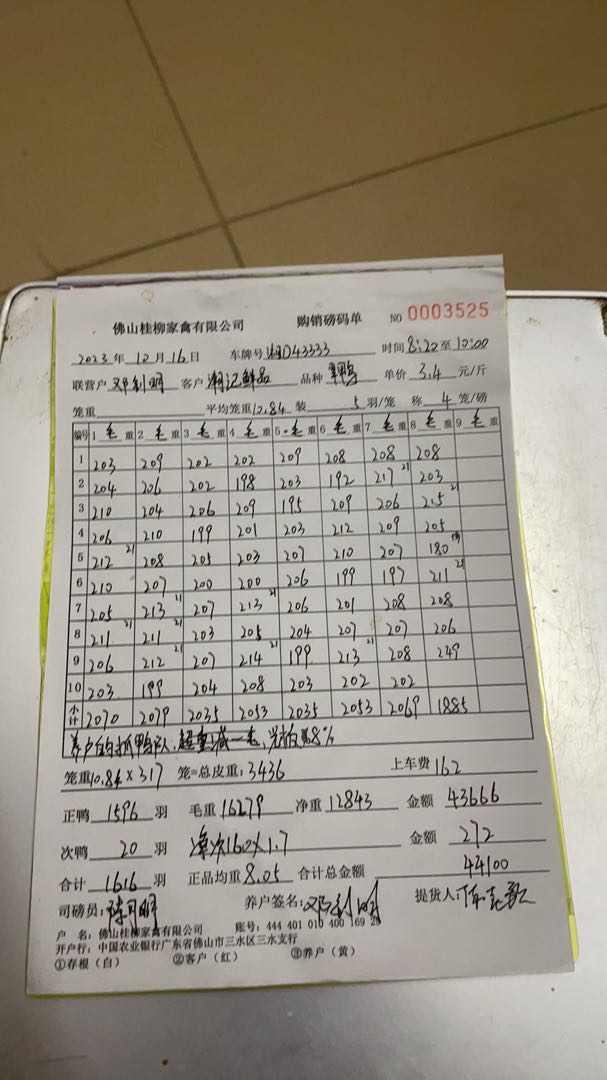 佛山桂柳家禽有限公司 购销磅码单 NO 0003525
2023年12月16日 车牌号湘D43333 时间8:20至10:00
联营户 邓利明 客户 湘记鲜品 品种 单价 3.4 元/斤
笼重 平均笼重10.84 装 5 羽/笼 称 4 笼/磅
编号 1 毛 重 2 毛 重 3 毛 重 4 毛 重 5 毛 重 6 毛 重 7 毛 重 8 毛 重 9 毛 重
1 203 209 202 202 209 208 208 208
2 204 206 202 198 203 192 217 21 203
3 210 204 206 209 195 209 206 215 21
4 206 210 199 201 203 212 209 205
5 212 21 208 205 203 207 210 207 180
6 210 207 200 200 206 199 197 211 21
7 205 213 21 207 213 21 206 201 208 208
8 211 21 211 21 203 205 204 207 207 206
9 206 212 21 207 214 21 199 213 21 208 249
10 203 199 204 208 203 202 202
小计 2070 2079 2035 2053 2035 2053 2069 1885
养户自约抓鸭队,超重减一毛, 8%
笼重10.84×317 笼=总皮重:3436 上车费 162
正鸭 1596 羽 毛重 16279 净重 12843 金额 43666
次鸭 20 羽 160×1.7 金额 272
合计 1616 羽 正品均重 8.05 合计总金额 44100
司磅员: 养户签名:邓利明 提货人:
户 名:佛山桂柳家禽有限公司 账号:444 401 010 400 169 28
开户行:中国农业银行广东省佛山市三水区三水支行
①存根(白) ②客户(红) ③养户(黄)